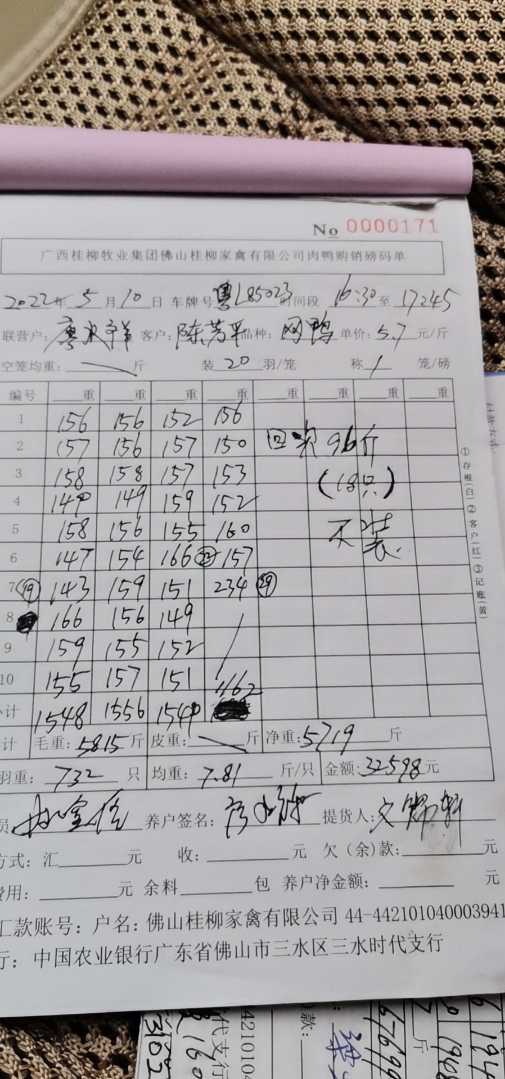 No 0000171
广西桂柳牧业集团佛山桂柳家禽有限公司肉鸭购销磅码单
2022年 5月 10日 车牌号 粤L85023 时间段 16:30 至 17:45
联营户: 客户: 陈芳平 品种: 网鸭 单价: 5.7 元/斤
空笼均重: 斤 装 20 羽/笼 称 1 笼/磅
编号 重 重 重 重 重 重 重 重
1 156 156 152 156
2 157 156 157 150 回 96斤
3 158 158 157 153 (18只)
4 149 149 159 152
5 158 156 155 160 不装
6 147 154 166 157
7 (19) 143 159 151 234 (29)
8 166 156 149
9 159 155 152
10 155 157 151
小计 1548 1556 1549 1162
计 毛重: 5815斤 皮重: 斤 净重: 5719 斤
羽重: 732 只 均重: 7.81 斤/只 金额: 32598元
员 养户签名: 提货人:
方式: 汇 元 收: 元 欠(余)款: 元
费用: 元 余料 包 养户净金额: 元
汇款账号: 户名: 佛山桂柳家禽有限公司 44-442101040003941
行: 中国农业银行广东省佛山市三水区三水时代支行
①存根(白)②客户(红)③记账(黄)